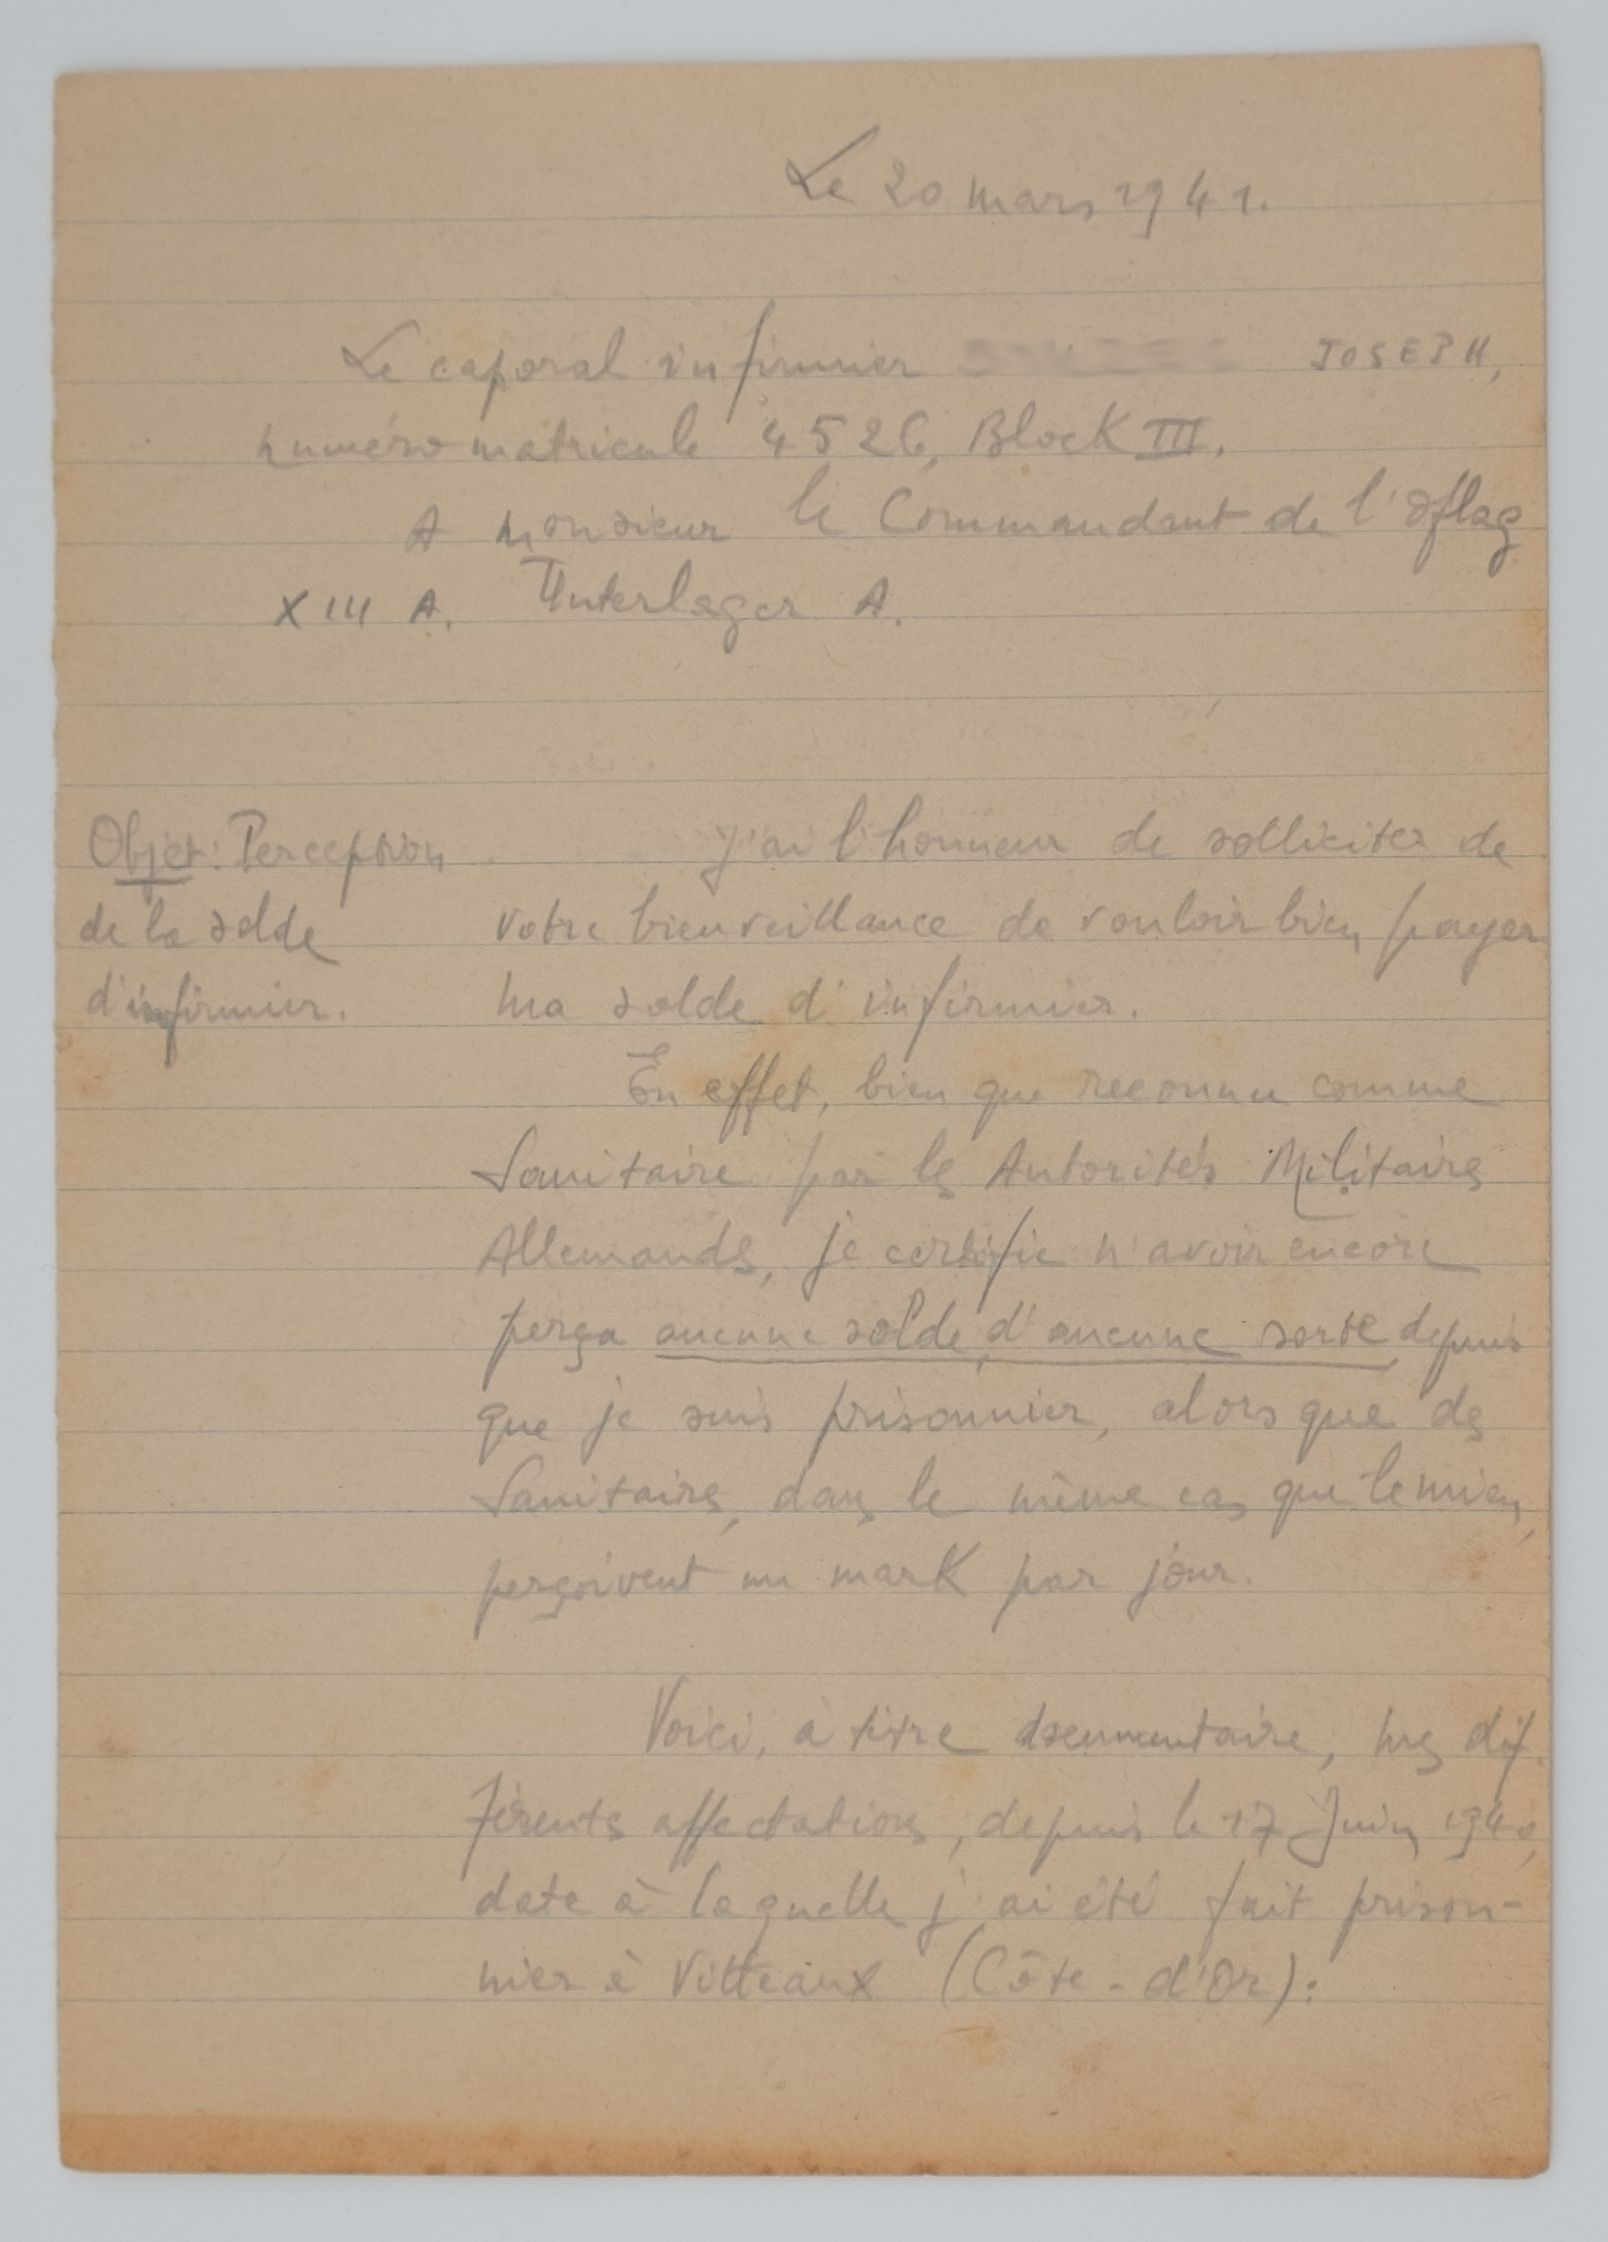 Le 20 mars 1941.
Le caporal infirmier JOSEPH,
numéro matricule 4526, Block III.
A monsieur le Commandant de l'Oflag
XIII A. Unterlager A.
Objet: Perception
de la solde
d'infirmier.
J'ai l'honneur de solliciter de
votre bienveillance de vouloir bien payer
ma solde d'infirmier.
En effet, bien que reconnu comme
Sanitaire par les Autorités Militaires
Allemandes, je certifie n'avoir encore
perçu aucune solde, d'aucune sorte, depuis
que je suis prisonnier, alors que des
Sanitaires, dans le même cas que le mien,
perçoivent un mark par jour.
Voici, à titre documentaire, mes dif-
férents affectations, depuis le 17 Juin 1940,
date à laquelle j'ai été fait prison-
nier à Vitteaux (Côte-d'Or):